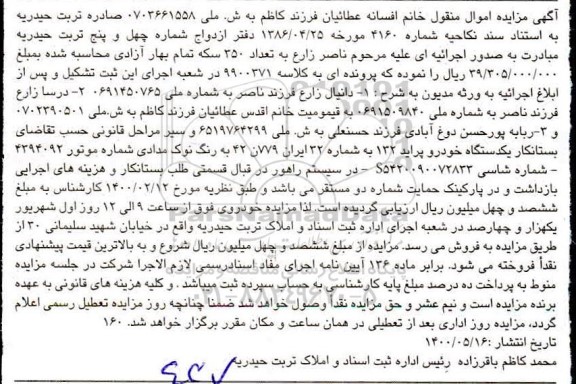 آگهی مزایده اموال منقول خانم افسانه عطائیان فرزند کاظم به ش. ملی ۰۷۰۳۶۶۱۵۵۸ صادره تربت حیدریه
به استناد سند نکاحیه شماره ۴۱۶۰ مورخه ۱۳۸۶/۰۴/۲۵ دفتر ازدواج شماره چهل و پنج تربت حیدریه
مبادرت به صدور اجرائیه ای علیه مرحوم ناصر زارع به تعداد ۳۵۰ سکه تمام بهار آزادی محاسبه شده بمبلغ
۳۹/۳۰۵/۰۰۰/۰۰۰ ریال را نموده که پرونده ای به کلاسه ۹۹۰۰۳۷۱ در شعبه اجرای این ثبت تشکیل و پس از
ابلاغ اجرائیه به ورثه مدیون به شرح : ۱- دانیال زارع فرزند ناصر به شماره ملی ۰۶۹۱۴۵۰۷۶۵ ۲- درسا زارع
فرزند ناصر به شماره ملی ۰۶۹۱۵۰۹۸۴۰ به قیمومیت خانم اقدس عطائیان فرزند کاظم به ش.ملی ۰۷۰۲۳۹۰۵۰۱
و ۳-ربابه پورحسن دوغ آبادی فرزند حسنعلی به ش. ملی ۶۵۱۹۷۶۴۲۹۹ و سیر مراحل قانونی حسب تقاضای
بستانکار یکدستگاه خودرو پراید ۱۳۲ به شماره ۳۲ ایران ۷۷۹ن ۴۲ به رنگ نوک مدادی شماره موتور ۴۳۹۴۰۹۲
- شماره شاسی S۵۴۲۰۰۹۰۰۷۲۸۳۳ - در سیستم راهور در قبال قسمتی طلب بستانکار و هزینه های اجرایی
بازداشت و در پارکینگ حمایت شماره دو مستقر می باشد و طبق نظریه مورخ ۱۴۰۰/۰۲/۱۲ کارشناس به مبلغ
ششصد و چهل میلیون ریال ارزیابی گردیده است. لذا مزایده خودروی فوق از ساعت ۹ الی ۱۲ روز اول شهریور
یکهزار و چهارصد در شعبه اجرای اداره ثبت اسناد و املاک تربت حیدریه واقع در خیابان شهید سلیمانی ۳۰ از
طریق مزایده به فروش می رسد. مزایده از مبلغ ششصد و چهل میلیون ریال شروع و به بالاترین قیمت پیشنهادی
نقداً فروخته می شود. برابر ماده ۱۳۶ آیین نامه اجرای مفاد اسنادرسمی لازم الاجرا شرکت در جلسه مزایده
منوط به پرداخت ده درصد مبلغ پایه کارشناسی به حساب سپرده ثبت میباشد . و کلیه هزینه های قانونی به عهده
برنده مزایده است و نیم عشر و حق مزایده نقدا وصول خواهد شد ضمناً چنانچه روز مزایده تعطیل رسمی اعلام
گردد، مزایده روز اداری بعد از تعطیلی در همان ساعت و مکان مقرر برگزار خواهد شد. ۱۶۰
تاریخ انتشار :۱۴۰۰/۰۵/۱۶
محمد کاظم باقرزاده رئیس اداره ثبت اسناد و املاک تربت حیدریه